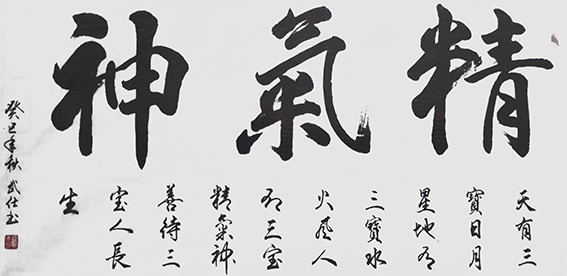 精氣神
天有三
寶日月
星地有
三寶水
火风人
有三宝
精氣神
善待三
宝人長
生
癸巳年秋武仕玉